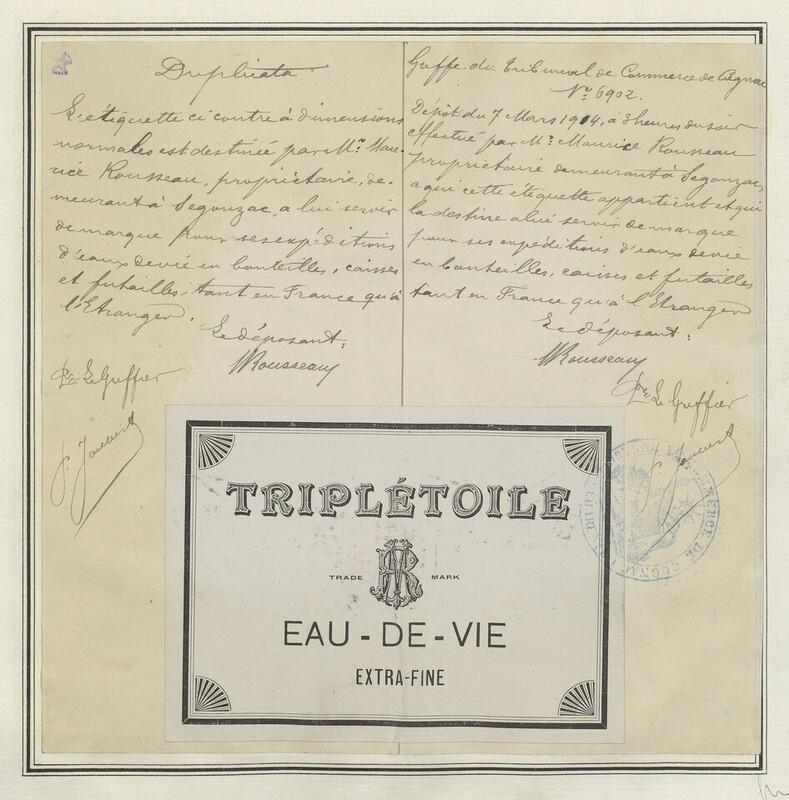 Duplicata
L'étiquette ci contre à dimensions
normales est destinée par Mr. Mau-
rice Rousseau, propriétaire, de-
meurant à Segonzac, a lui servir
de marque pour ses expéditions
d'eaux de vie en bouteilles, caisses
et futailles, tant en France qu'à
l'Etranger.
Le déposant:
MRousseau
Pr Le Greffier
Greffe du Tribunal de Commerce de Cognac
No. 6902.
Dépôt du 7 Mars 1914, à 3 heures du soir
effectué par Mr. Maurice Rousseau
propriétaire demeurant à Segonzac,
a qui cette étiquette appartient et qui
la destine a lui servir de marque
pour ses expéditions d'eaux de vie
en bouteilles, caisses et futailles
tant en France qu'à l'Etranger
Le déposant:
MRousseau
Pr Le Greffier
TRIPLÉTOILE
TRADE MR MARK
EAU-DE-VIE
EXTRA-FINE